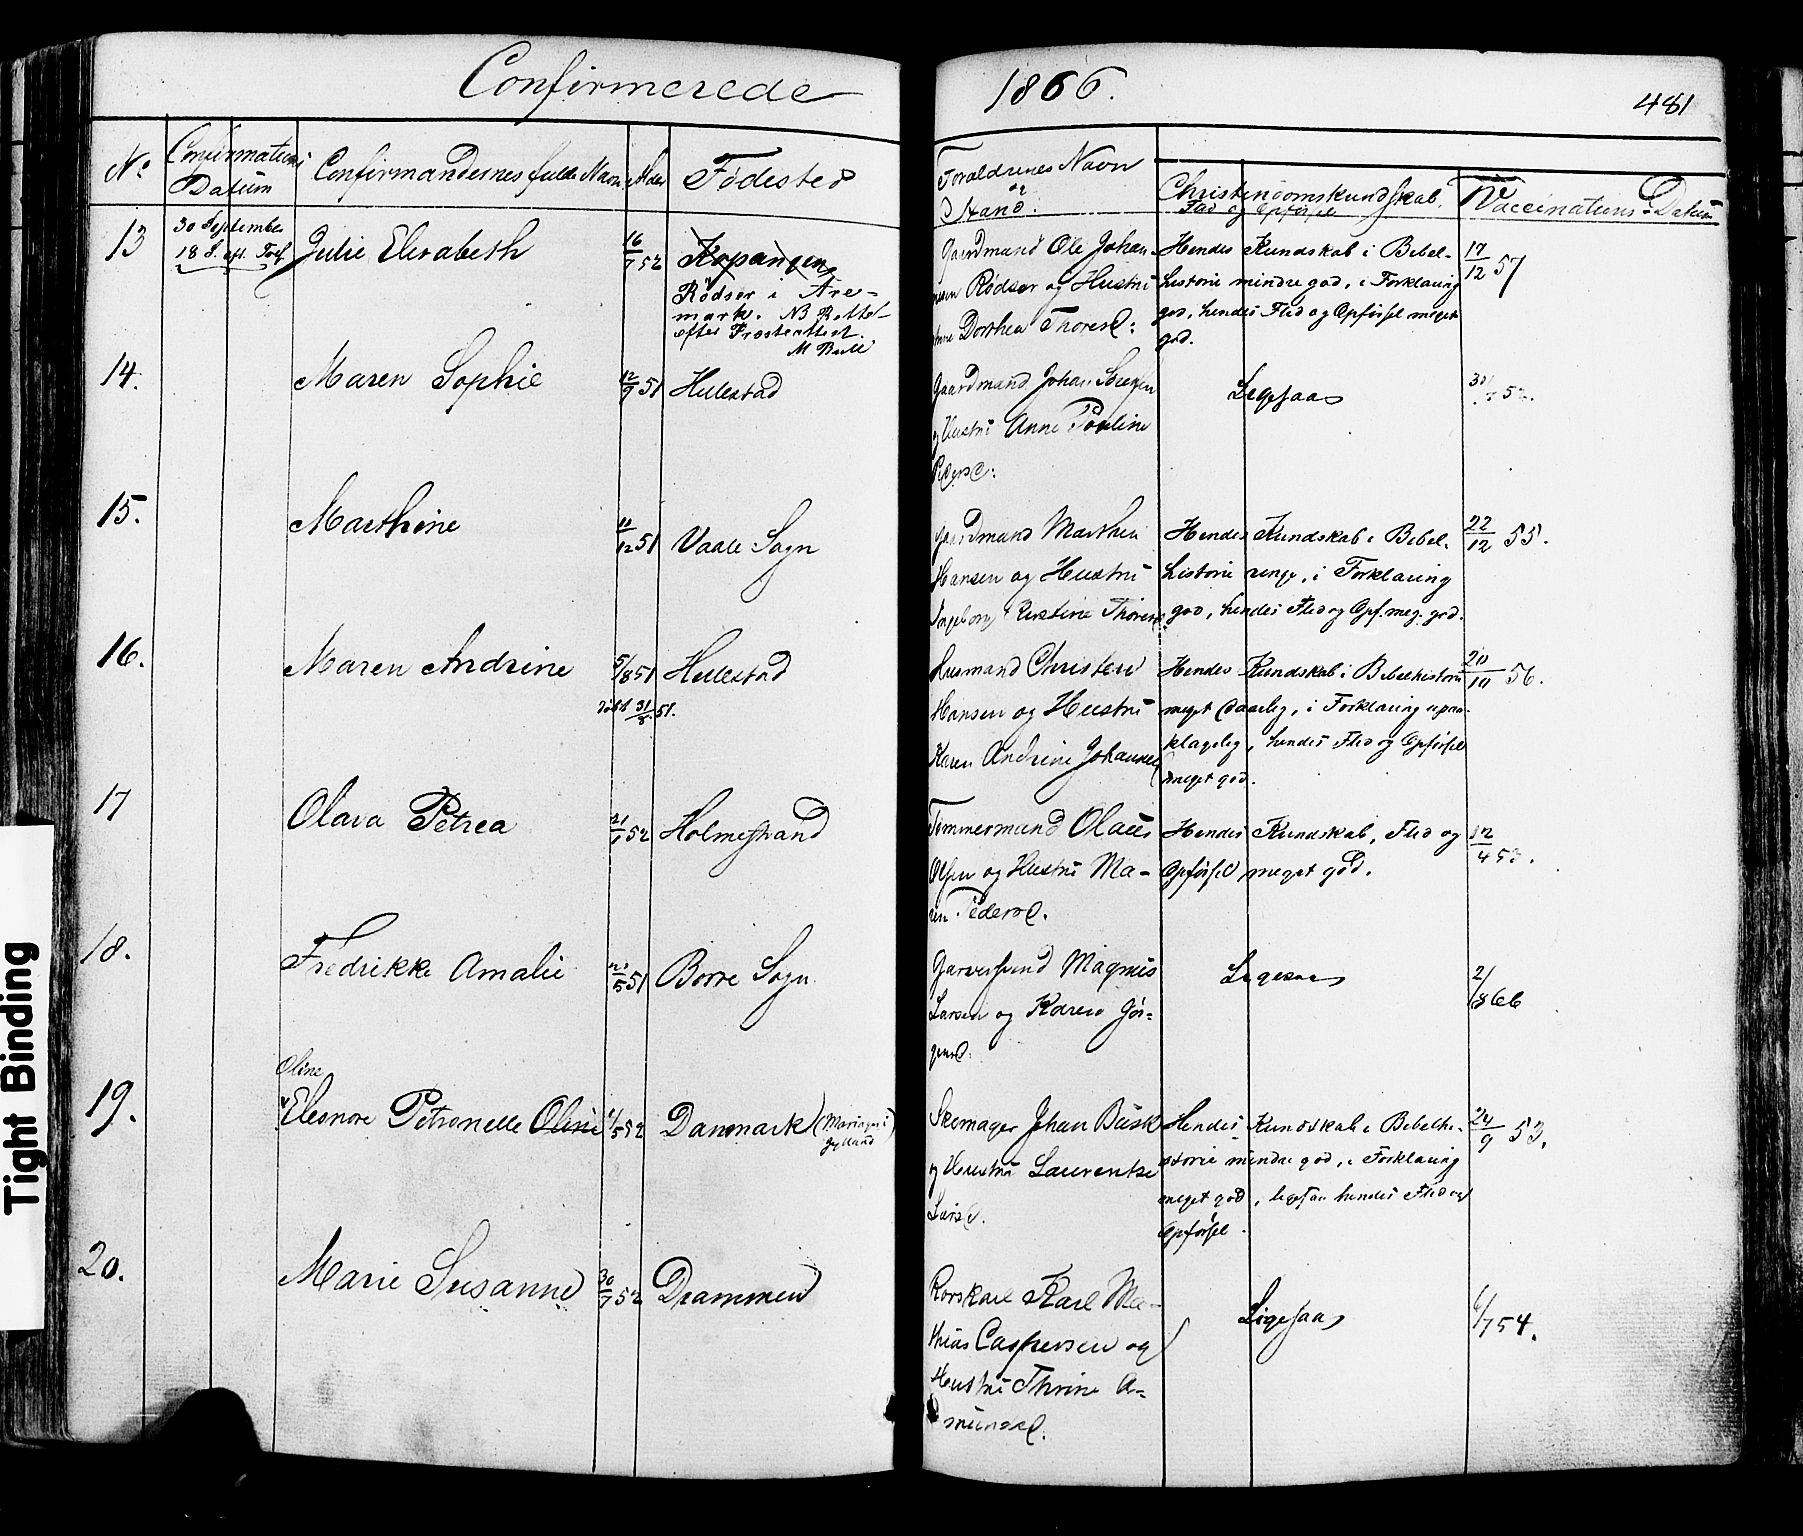 Confirmerede
1866.
481
No
Confirmations Datum
Confirmandernes fulde Navn
Alder
Födested
Foraldrenes Navn og Stand.
Christendomskundskab, Flid og Opförsel
Vaccinations-Datum
13
30 September
18 S. eft. Tref.
Julie Elisabeth
16/7 52
Kopangen
Rödsør i Are-
mark. NB Rettet
efter Prosteattest.
M Bull
Gaardmand Ole Johan-
nesen Rödsør og Hustru
Anne Dorthea Thoresd:
Hendes Kundskab i Bibel-
historie mindre god, i Forklaring
god, hendes Flid og Opförsel meget
god.
17/12 57
14.
Maren Sophie
12/9 51
Hillestad
Gaardmand Johan
og Hustru Anne Pauline
Pedersd:
Ligesaa
15.
Marthine
11/12 51
Vaale Sogn
Gaardmand Mathias
Hansen og Hustru
Ingeborg Kirstine Thoresd.
Hendes Kundskab i Bibel-
historie ringe, i Forklaring
god, hendes Flid og Opf. meg. god.
22/12 55.
16.
Maren Andrine
5/8 51
döbt 31/8 51.
Hillestad
Husmand Christen
Hansen og Hustru
Karen Andrine Johannesd
Hendes Kundskab i Bibelhistorie
meget daarlig, i Forklaring upaa-
klagelig, hendes Flid og Opförsel
meget god.
20/10 56.
17
Olava Petrea
21/1 52
Holmestrand
Tömmermand Olaus
Olsen og Hustru Ma-
ren Pedersd.
Hendes Kundskab, Flid og
Opförsel meget god.
12/4 53.
18.
Fredrikke Amalie
/5 51
Borre Sogn.
Garversvend Magnus
Larsen og Karen Jör-
gensd.
Ligesaa
2/8 66
Oline
19.
Eleonore Petronelle Oline
1/5 52
Danmark (Mariager i
Jylland)
Skomager Johan Busk
og Hustru Laurentze
Larsd.
Hendes Kundskab i Bibelhi-
storie mindre god, i Forklaring
meget god, ligesaa hendes Flid og
Opförsel.
24/9 53.
20.
Marie Susanne
30/7 52
Drammen
Rorskarl Karl Ma-
thias Caspersen og
Hustru Thrine A-
mundsd.
Ligesaa
6/7 54.
Tight Binding